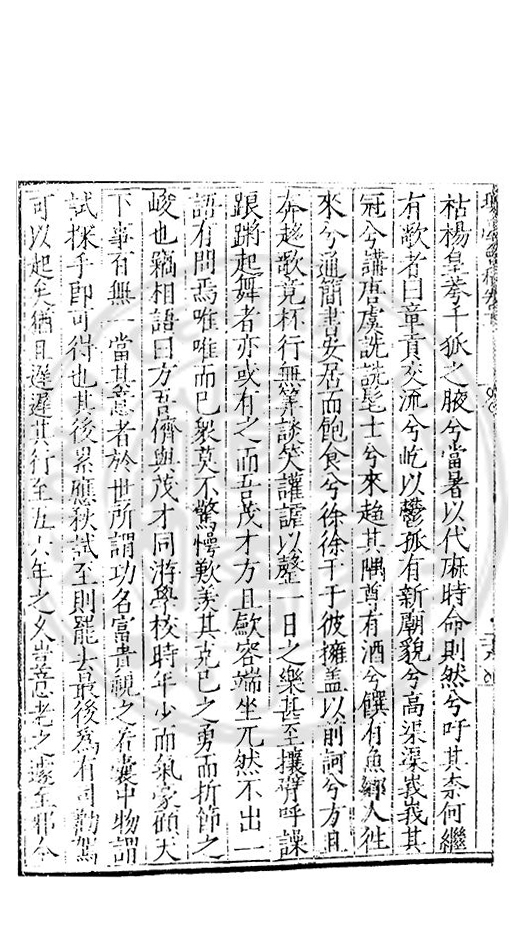 枯楊皇荂千狐之腋兮當暑以代麻時命則然兮吁其柰何繼
有歌者曰章貢交流兮屹以鬱孤有新廟貌兮高渠渠峩峩其
冠兮講唐虞詵詵髦士兮來趋其隅尊有酒兮饌有魚鄉人徃
來兮通簡書安居而飽食兮徐徐于于彼擁盖以前訶兮方且
奔趍歌竟杯行無筭談笑讙謔以罄一日之樂甚至攘臂呼譟
踉蹡起舞者亦或有之而吾茂才方且歛容端坐兀然不出一
語有問焉唯唯而已衆莫不驚愕歎羡其克已之勇而折節之
峻也竊相語曰方吾儕與茂才同游學校時年少而氣豪顧天
下事百無一當其意者於世所謂功名富貴視之若囊中物謂
試探手即可得也其後累應秋試至則罷去最後爲有司勸駕
可以起矣猶且遲遲其行至五六年之久豈意老之遂至邪今